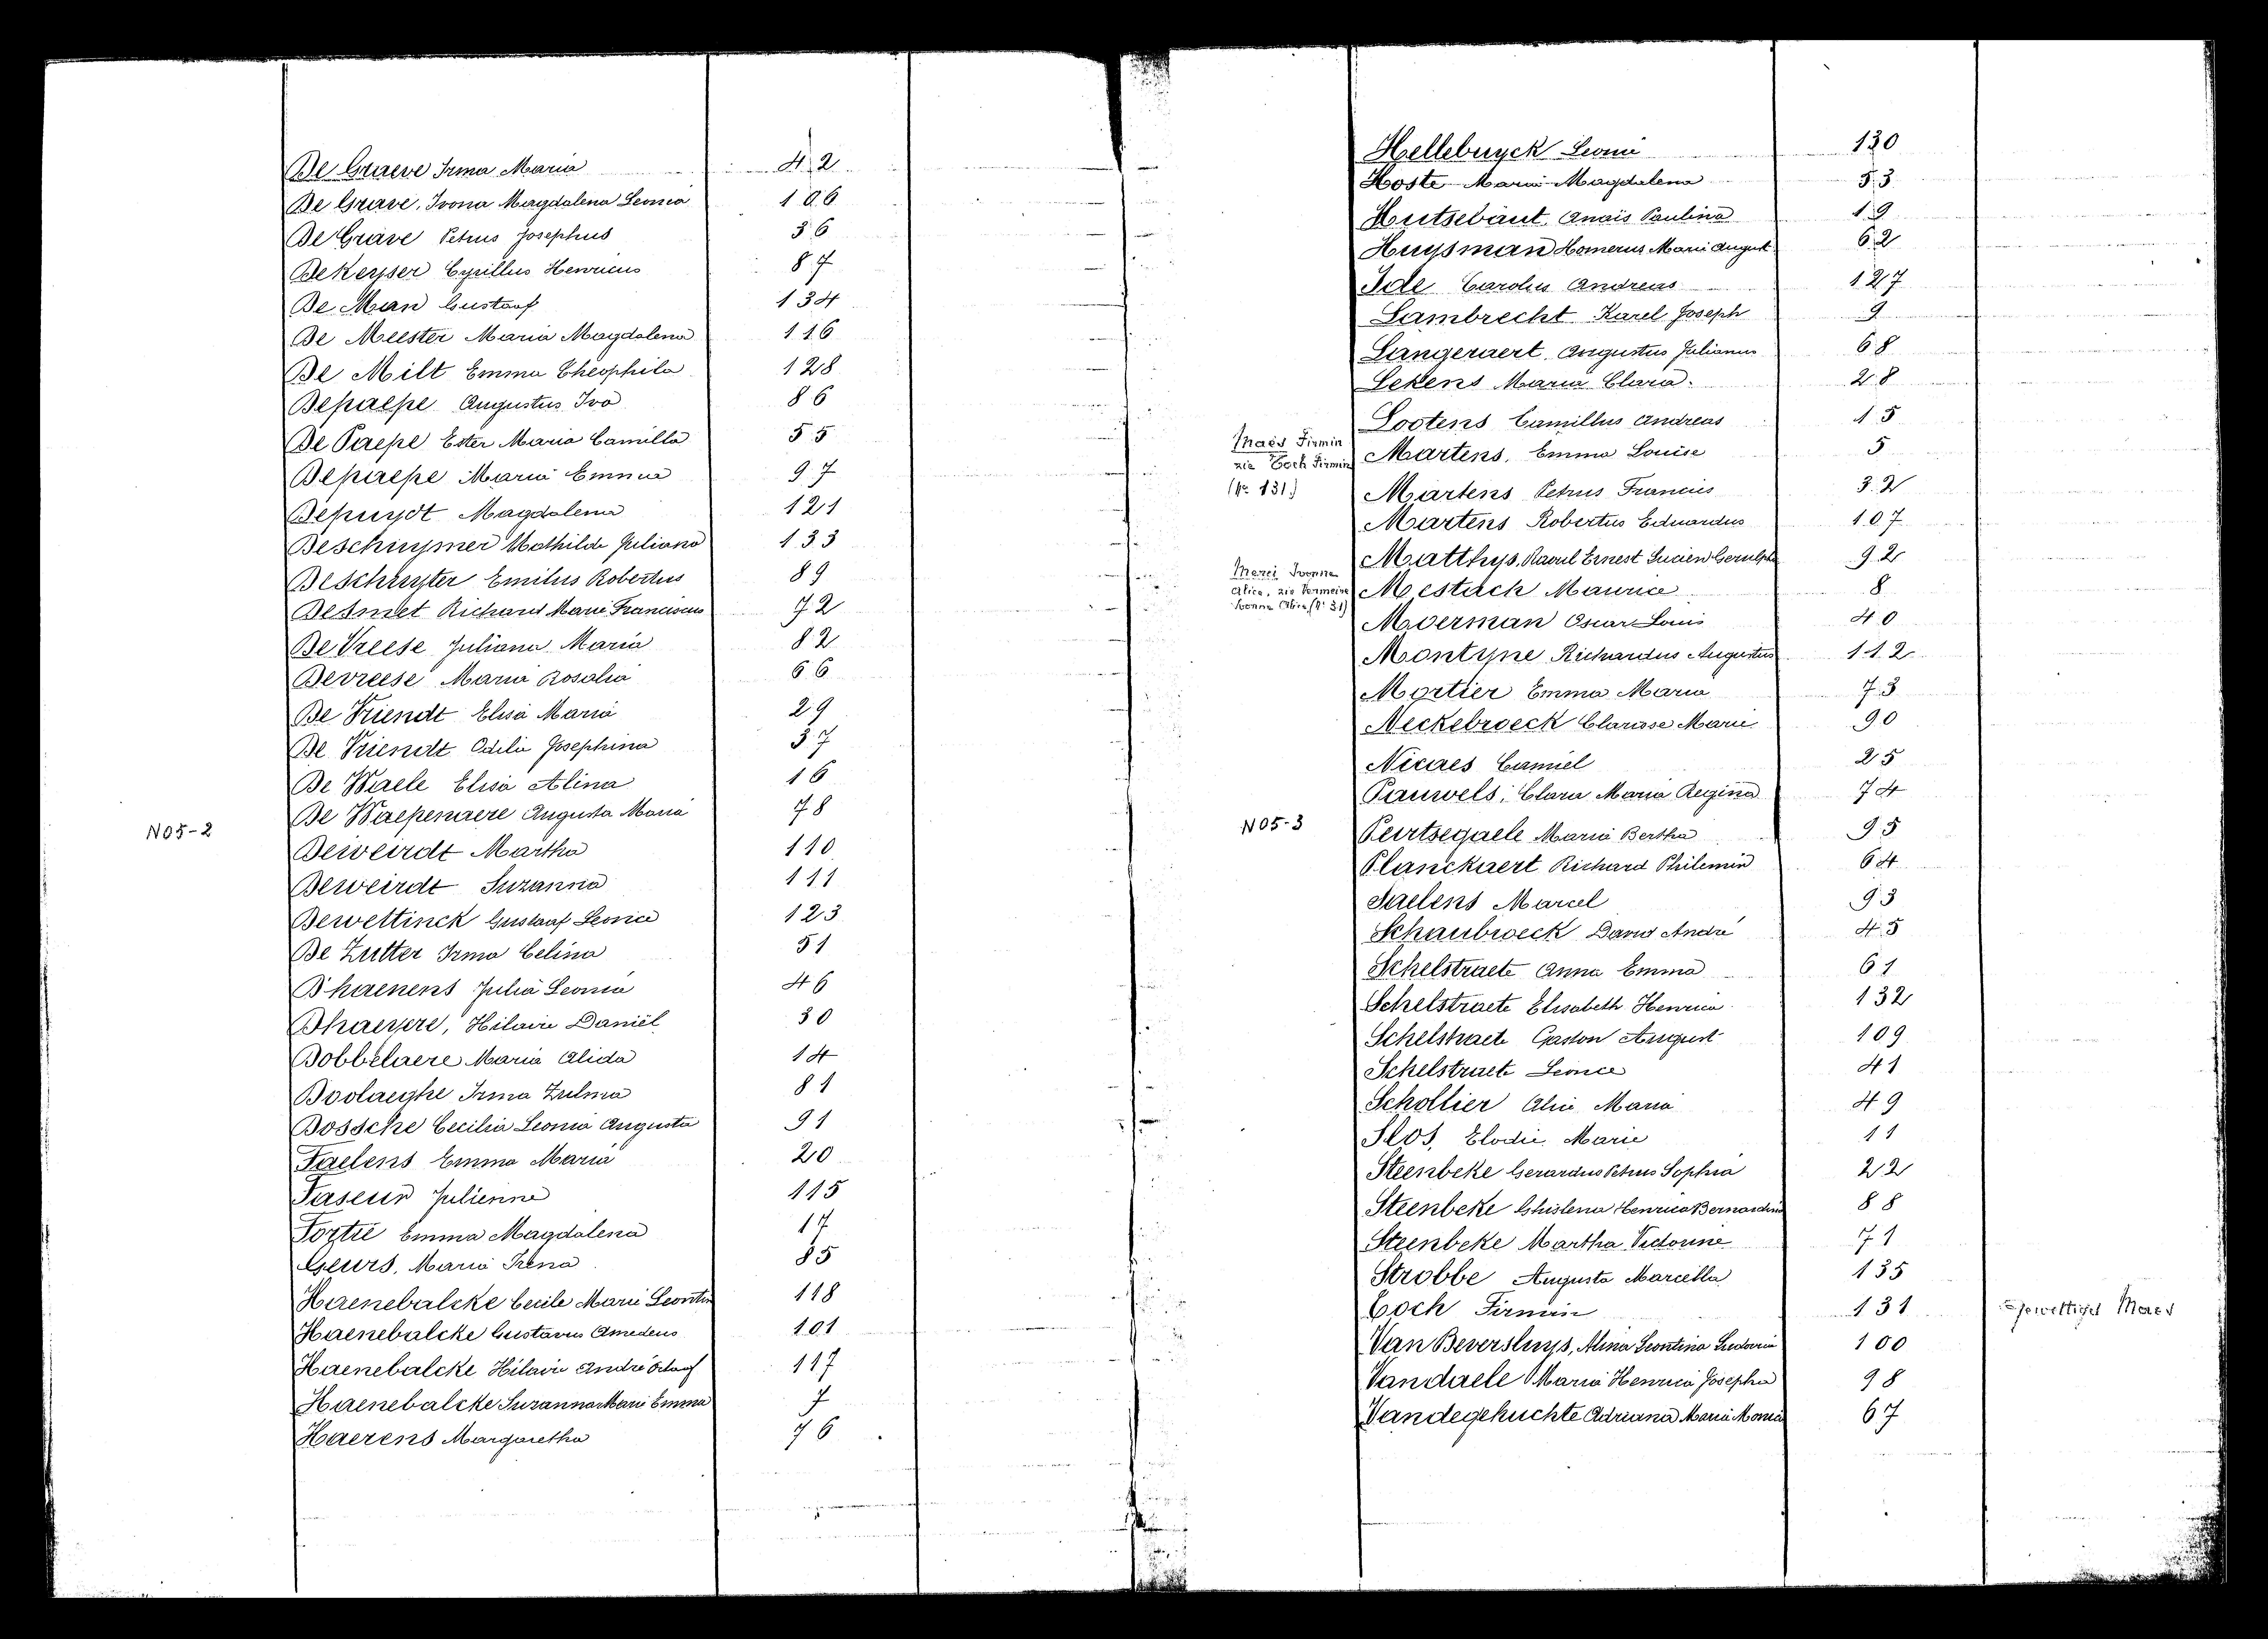 De Graeve Irma Maria 42
De Grave, Ivona Magdalena Leonia 106
De Grave Petrus Josephus 36
De Keyser Cyrillus Henricus 87
De Man Gustaaf 134
De Meester Maria Magdalena 116
De Milt Emma Theophila 128
Depaepe Augustus Ivo 86
De Paepe Ester Maria Camilla 55
Depaepe Maria Emma 97
Depuydt Magdalena 121
Deschuymer Mathilde Juliana 133
Deschuyter Emilius Robertus 89
Desmet Richard Marie Franciscus 72
De Vreese Juliana Maria 82
Devreese Maria Rosalia 66
De Vriendt Elisa Maria 29
De Vriendt Odilia Josephina 37
De Waele Elisa Alina 16
De Waepenaere Augusta Maria 78
N05-2
Deweirdt Martha 110
Deweirdt Suzanna 111
Dewettinck Gustaaf Leonce 123
De Zutter Irma Celina 51
D'haenens Julia Leonia 46
Dhaeyere, Hilaire Daniël 30
Dobbelaere Maria Alida 14
Doolaeghe Irma Zulma 81
Dossche Cecilia Leonia Augusta 91
Faelens Emma Maria 20
Faseur Julienne 115
Fortié Emma Magdalena 17
Geurs, Maria Irena 85
Haenebalcke Cecile Marie Leontin 118
Haenebalcke Gustavus Amedeus 101
Haenebalcke Hilaire André 117
Haenebalcke Suzanna Marie Emma 7
Haerens Margaretha 76
Hellebuyck Leonie 130
Hoste Maria Magdalena 53
Hutsebaut, Anaïs Paulina 19
Huysman Homerus Marie August 62
Ide Carolus Andreas 127
Lambrecht Karel Joseph 9
Langeraert Augustus Julianus 68
Lekens Maria Clara 28
Lootens Camillus Andreas 15
Maes Firmin
zie Coch Firmin
(No 131)
Martens, Emma Louise 5
Martens Petrus Francies 32
Martens Robertus Eduardus 107
Matthys, Raoul Ernest Lucien Gerulphe 92
Ivonne
Alice, zie Vermeire
Ivonne Alice (No 31)
Mestach Maurice 8
Moerman Oscar Louis 40
Montyne Richardus Augustus 112
Mortier Emma Maria 73
Neckebroeck Clarisse Marie 90
Nicaes Camiel 25
Pauwels, Clara Maria Regina 74
N05-3
Peirtsegaele Maria Bertha 95
Planckaert Richard Philemin 64
Saelens Marcel 93
Schaubroeck David André 45
Schelstraete Anna Emma 61
Schelstraete Elisabeth Henrica 132
Schelstraete Gaston August 109
Schelstraete Leonce 41
Schollier Alice Maria 49
Slos, Elodie Marie 11
Steenbeke Gerardus Petrus Sophia 22
Steenbeke Ghislena Henrica Bernardina 88
Steenbeke Martha Victorine 71
Strobbe Augusta Marcella 135
Coch Firmin 131 gewettigd Maes
Van Beversluys, Alina Leontina 100
Vandaele Maria Henrica Josepha 98
Vandegehuchte Adriana Maria 67